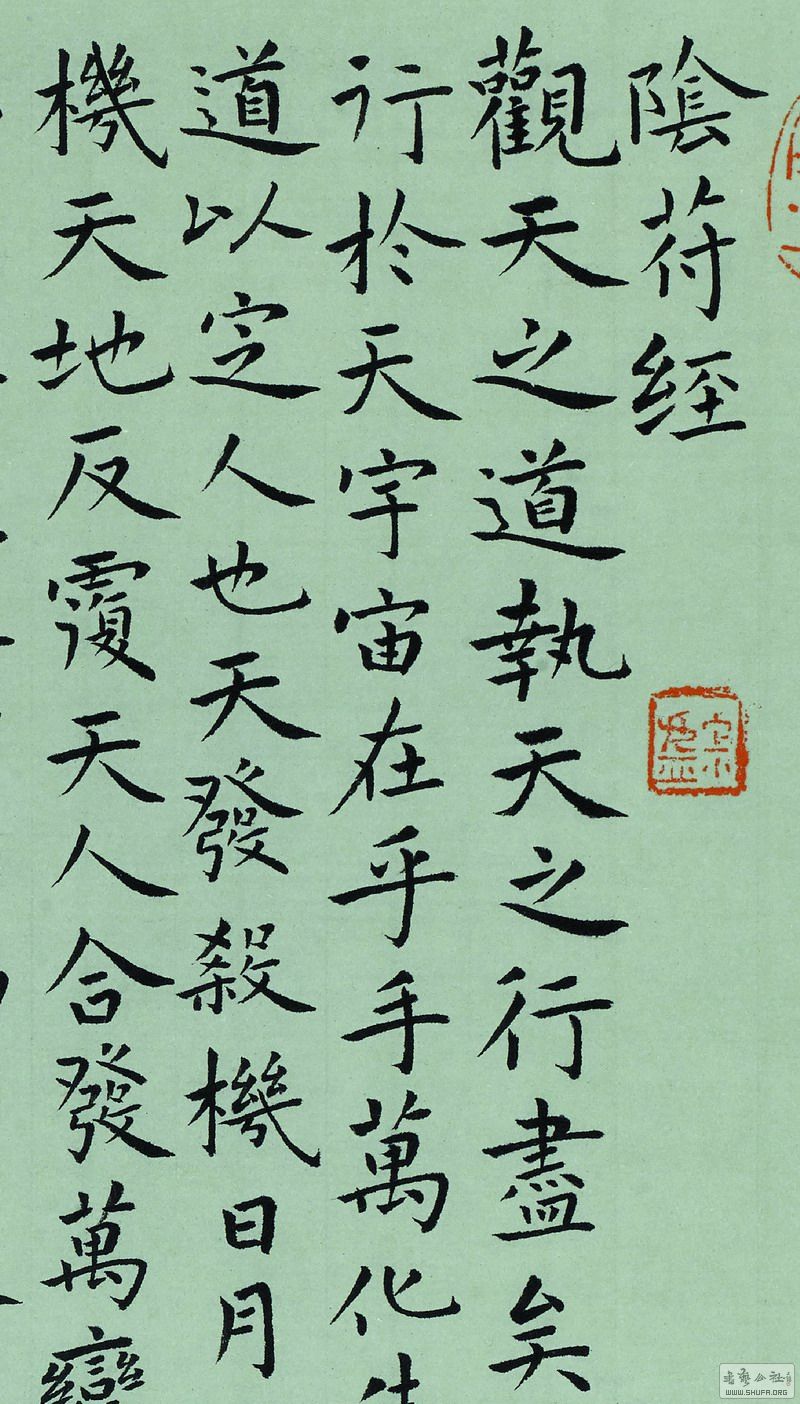 陰苻經
觀天之道執天之行盡矣
行於天宇宙在乎手萬化生
道以定人也天發殺機日月
機天地反覆天人合發萬變
書藝公社
WWW.SHUFA.ORG